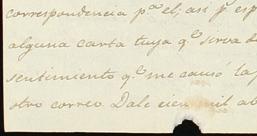 correspondencia pª el; asi pº esp
alguna carta tuya qº sirva d
sentimiento qº me causó la p
otro correo. Dale cien mil ab